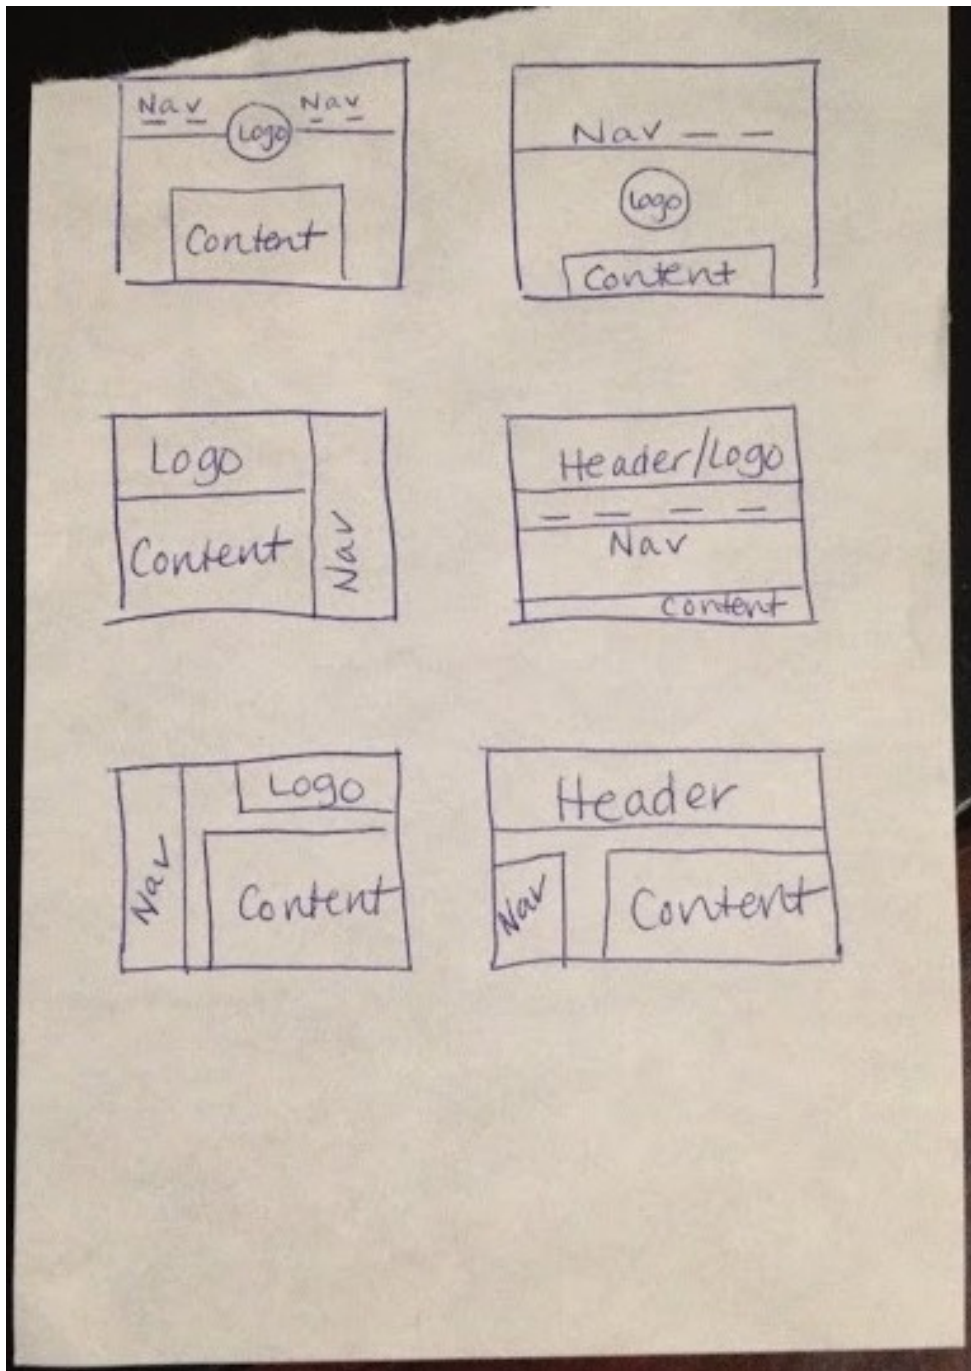 Nav Nav
Logo
Content
Nav
Logo
Content
Logo
Content
Nav
Header/Logo
Nav
Content
Nav
Logo
Content
Header
Nav
Content